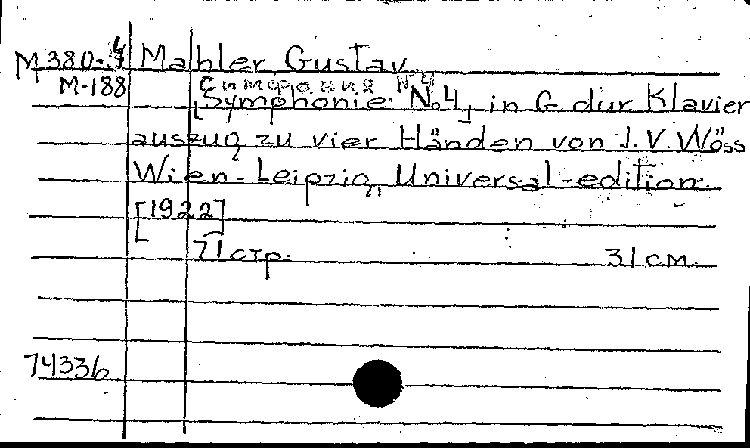 М 380-4 Mahler Gustav
М-188 Симфония N.4
[Symphonie N.4] in G dur Klavier
auszug zu vier Händen von J.V. Wöss
Wien-Leipzig, Universal-edition.
[1922]
71 стр. 31 см.
74336